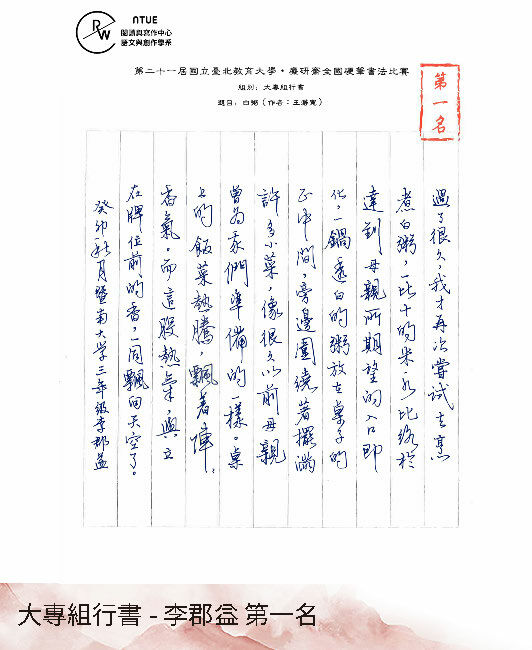 NTUE
RW
閱讀與寫作中心
語文與創作學系
第二十一屆國立臺北教育大學・廣研齋全國硬筆書法比賽
組別：大專組行書
題目：白粥（作者：王瀚寬）
第一名
過了很久，我才再次嘗試去烹
煮白粥，一比十的米水比終於
達到母親所期望的入口即
化，一鍋透白的粥放在桌子的
正中間，旁邊圍繞著擺滿
許多小菜，像很久以前母親
曾為我們準備的一樣。桌
上的飯菜熱騰，飄著陣陣
香氣。而，這股熱氣，與立
在牌位前的香，一同飄向天空了。
癸卯秋月暨南大學三年級李郡益
大專組行書 - 李郡益 第一名